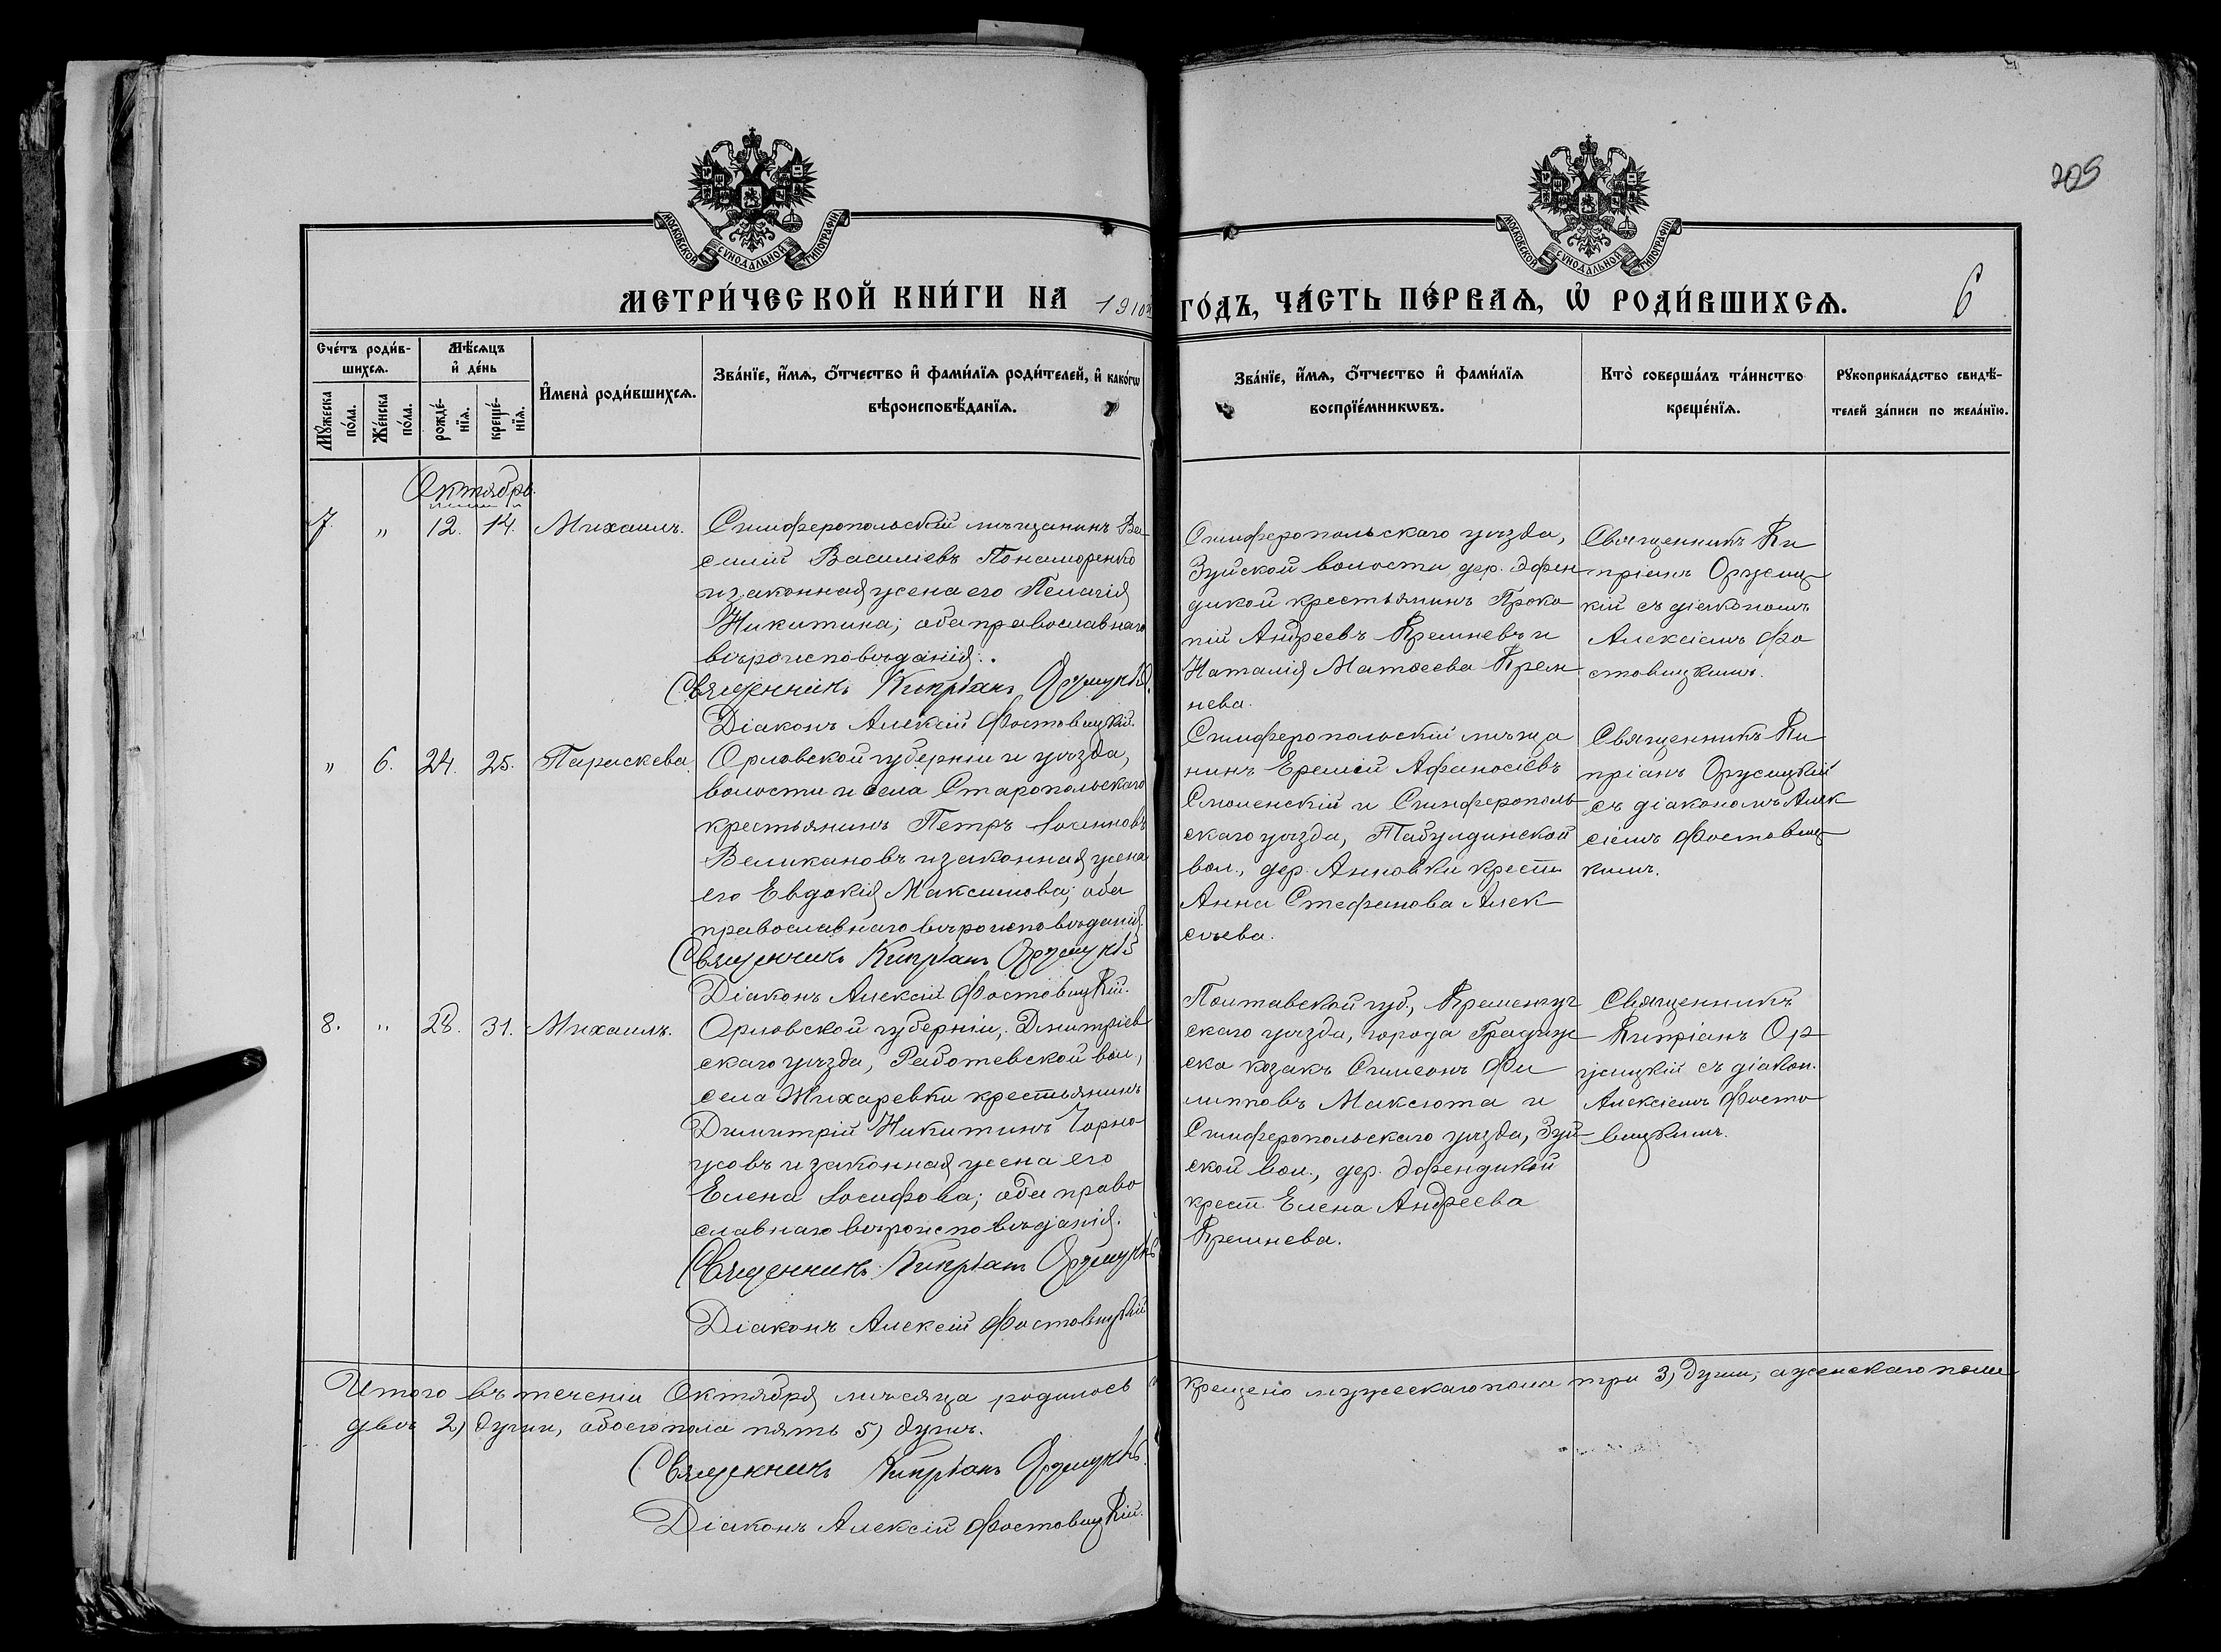 209
МОСКОВСКОЙ СѴНОДАЛЬНОЙ ТИПОГРАФІИ
МОСКОВСКОЙ СѴНОДАЛЬНОЙ ТИПОГРАФІИ
МЕТРИ́ЧЕСКОЙ КНИ́ГИ НА 1910
ГО́ДЪ, ЧА́СТЬ ПЕ́РВАѦ, Ѽ РОДИ́ВШИХСѦ.
6
Сче́тъ роди́в-
шихсѧ.
Мꙋ́жеска
по́ла.
Же́нска
по́ла.
Мѣ́сѧцъ
и҆ де́нь
рожде́-
нїѧ.
креще́-
нїѧ.
И҆мена̀ роди́вшихсѧ.
Зва́нїе, и҆́мѧ, ѻ҆́тчество и҆ фами́лїѧ роди́телей, и҆ како́гѡ
вѣроисповѣ́данїѧ.
Зва́нїе, и҆́мѧ, ѻ҆́тчество и҆ фами́лїѧ
воспрїе́мникѡвъ.
Кто̀ соверша́лъ та́инство
креще́нїѧ.
Рꙋкоприкла́дство свидѣ́-
телей за́писи по жела́нїю.
Октябрь.
7. " 12. 14. Михаилъ.
Симферопольскій мѣщанинъ Ва-
силій Василіевъ Понаморенко
и законная жена его Пелагія
Никитина; оба православнаго
вѣроисповѣданія.
Священникъ Кипріанъ Оржицкій.
Діаконъ Алексій Фостовицкій.
Симферопольскаго уѣзда,
Зуйской волости дер. Эфен
дикой крестьянинъ Проко
пій Андреевъ Кремневъ и
Наталія Матѳеева Крем
нева.
Священникъ Ки
пріанъ Оржиц
кій съ діакономъ
Алексіемъ Фо
стовицкимъ.
" 6. 24. 25. Параскева.
Орловской губерніи и уѣзда,
волости и села Старопольскаго
крестьянинъ Петръ
Великановъ и законная жена
его Евдокія Максимова; оба
православнаго вѣроисповѣданія.
Священникъ Кипріанъ Оржицкій
Діаконъ Алексій Фостовицкій.
Симферопольскій мѣща
нинъ Еремій Афанасіевъ
Смоленскій и Симферополь
скаго уѣзда, Табулдинской
вол., дер. Анновки крест
Анна Стефанова Алек
сѣева.
Священникъ Ки
пріанъ Оржицкій
съ діакономъ Алек
сіемъ Фостовиц
кимъ.
8. " 28. 31. Михаилъ.
Орловской губерніи, Дмитріев
скаго уѣзда, Работевской вол.,
села Жихаревки крестьянинъ
Димитрій Никитинъ Чорно
усовъ и законная жена его
Елена Іосифова; оба право
славнаго вѣроисповѣданія.
Священникъ Кипріанъ Оржицкій
Діаконъ Алексій Фостовицкій
Полтавской губ., Кременчуг
скаго уѣзда, города Градиж
ска козакъ Симеонъ Фи
липповъ Максюта и
Симферопольскаго уѣзда, Зуй
ской вол., дер. Эфендикой
крест Елена Андреева
Кремнева.
Священникъ
Кипріанъ Ор
жицкій съ діакон.
Алексіемъ Фосто
вицкимъ.
Итого въ теченіи Октября мѣсяца родилось и крещено мужескаго пола три 3) души, а женскаго пола
двѣ 2) души, обоего пола пять 5) душъ.
Священникъ Кипріанъ Оржицкій.
Діаконъ Алексій Фостовицкій.